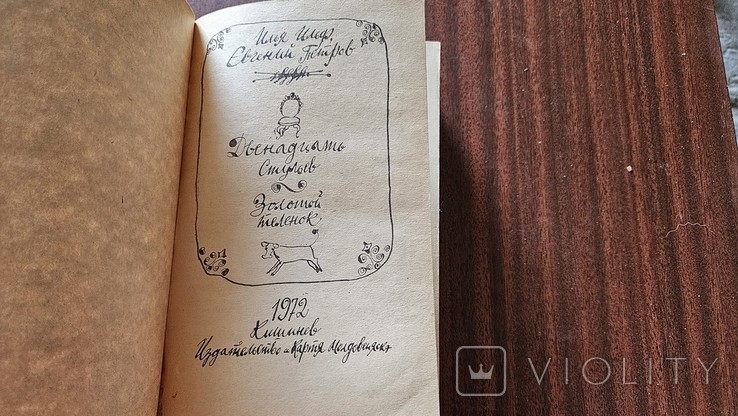 Илья Ильф,
Евгений Петров
Двенадцать
стульев
Золотой
теленок
1972
Кишинев
Издательство "Картя Молдовеняскэ"
VIOLITY